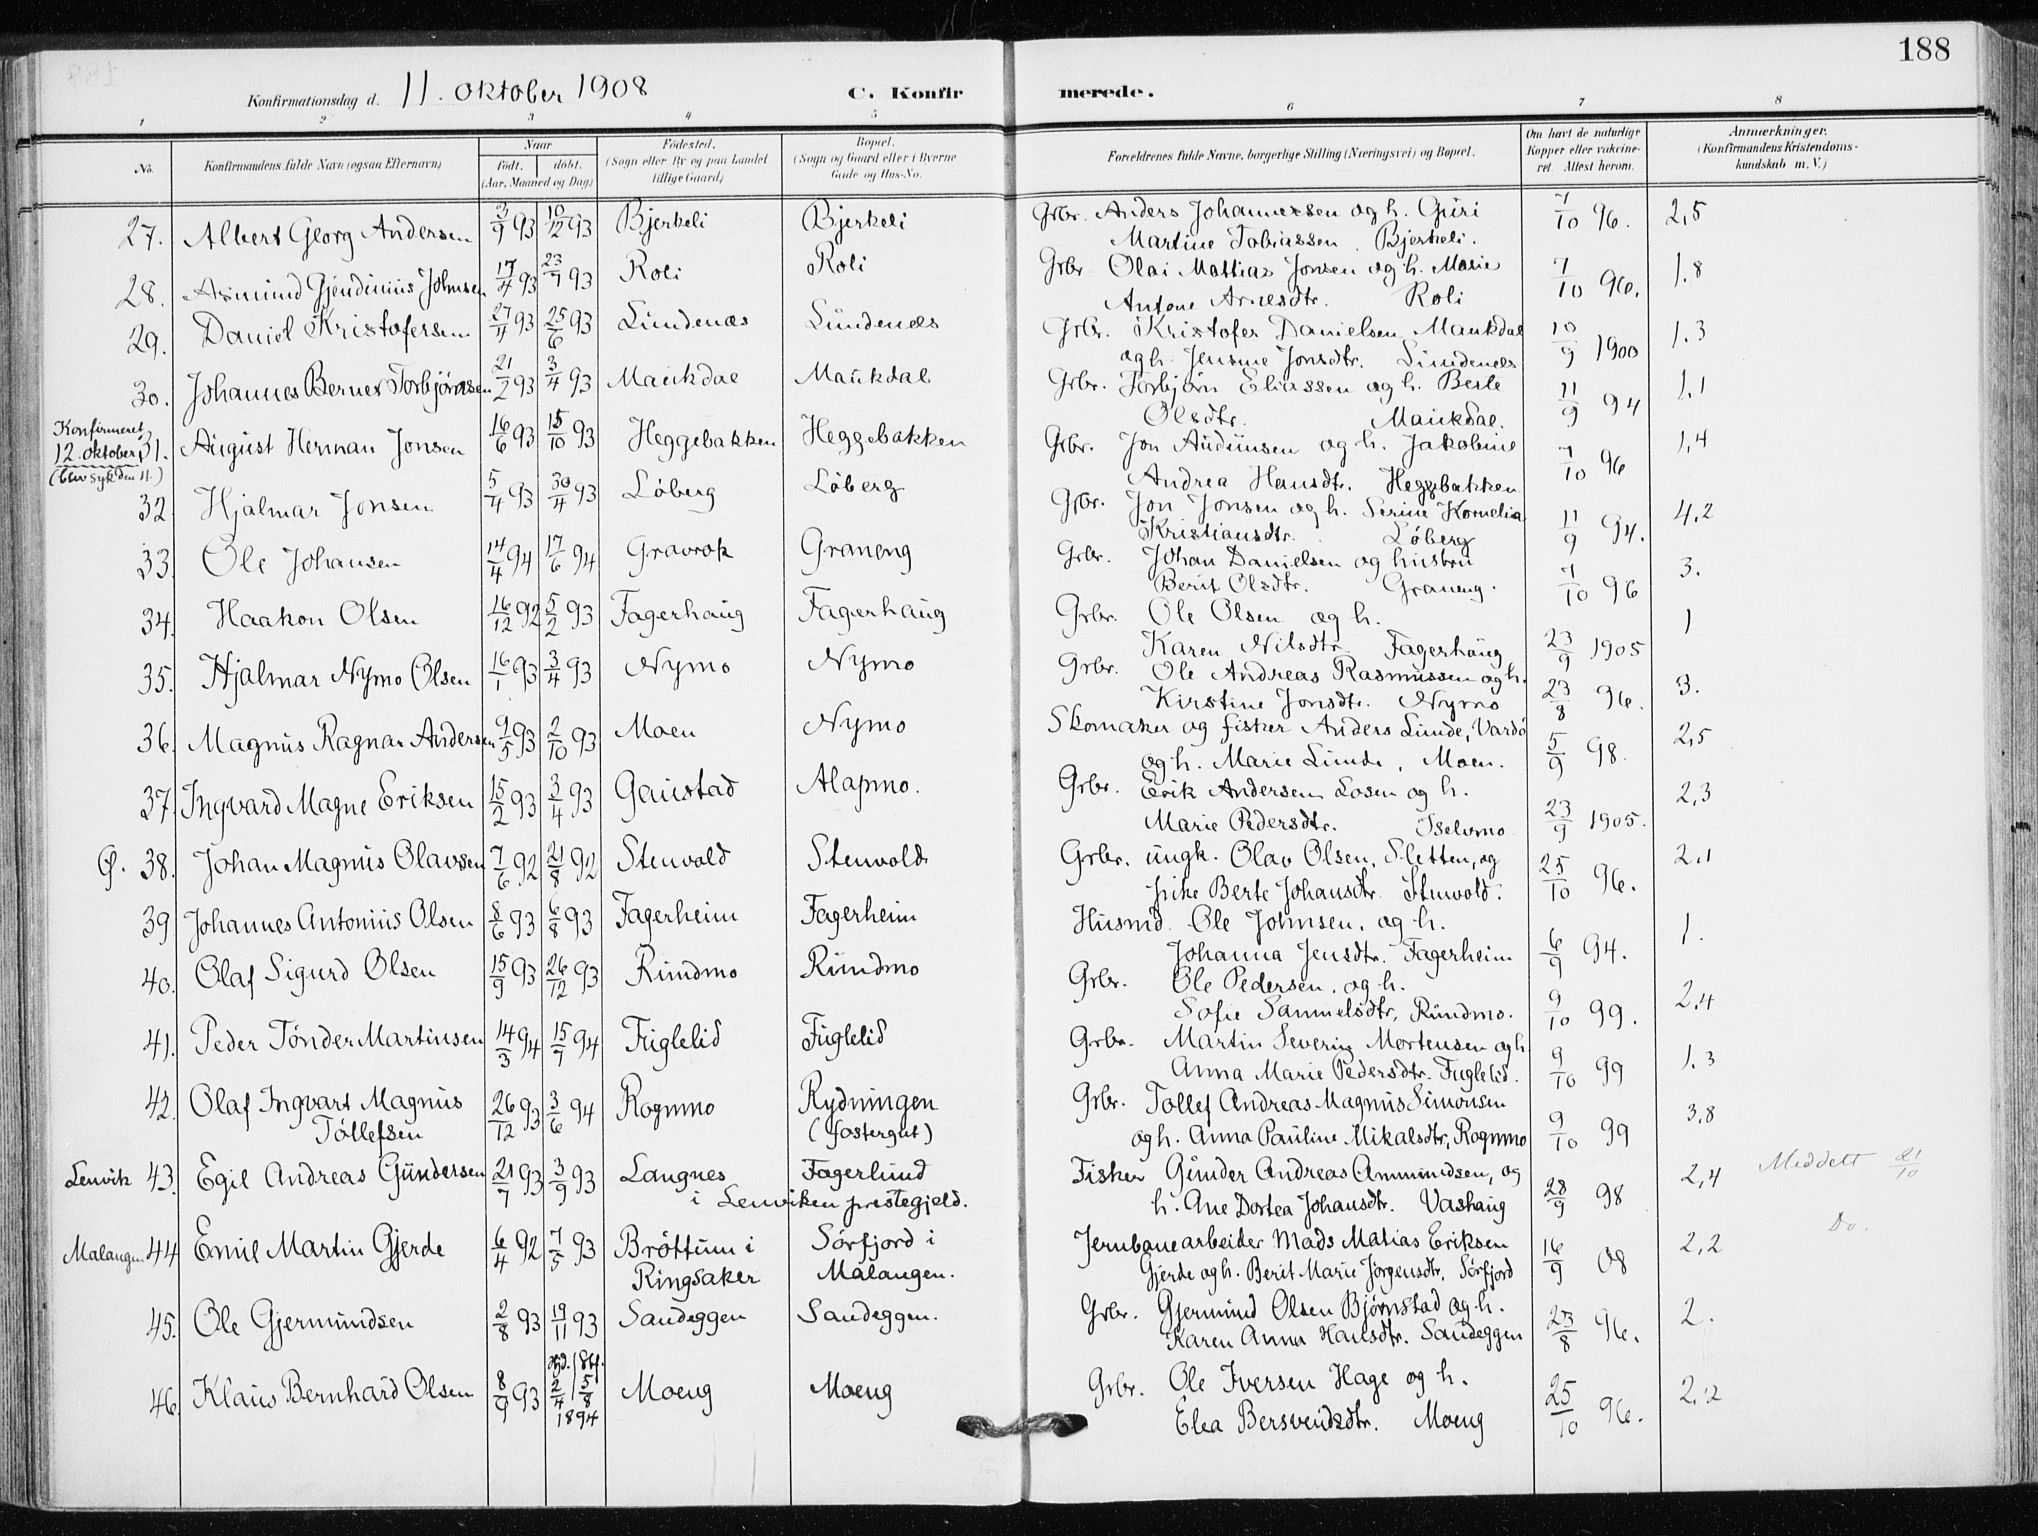 188
Konfirmationsdag d. 11. oktober 1908 C. Konfirmerede.
1 2 3 4 5 6 7 8
No. Konfirmandens fulde Navn (ogsaa Efternavn) Naar født. døbt. (Aar, Maaned og Dag) Fødested. (Sogn eller By og paa Landet tillige Gaard) Bopæl. (Sogn og Gaard eller i Byerne Gade og Hus-No. Forældrenes fulde Navne, borgerlige Stilling (Næringsvei) og Bopæl. Om havt de naturlige Kopper eller vakcineret. Attest herom. Anmærkninger. (Konfirmandens Kristendomskundskab m. V.)
27. Albert Georg Andersen 3/9 93 10/12 93 Bjerkeli Bjerkeli Grbr. Anders Johannessen og h. Guri 7/10 96. 2,5
Martine Tobiassen. Bjerkeli.
28. Asmund Gjendinius Johnsen 17/4 93 23/7 93 Roli Roli Grbr. Olai Mattias Jonsen og h. Marie 7/10 96. 1.8
Antone Arnesdtr. Roli
29. Daniel Kristofersen 27/4 93 25/6 93 Lundenæs Lundenæs Grbr. Kristofer Danielsen Maukdal 10/9 1900 1.3
og h. Jensine Jonsdtr. Lundenæs
30. Johannes Berner Torbjørnsen 21/2 93 3/4 93 Maukdal Maukdal Grbr. Torbjørn Eliassen og h. Berte 11/9 94 1.1
Olsdtr. Maukdal.
Konfirmeret
12. oktober 31. August Herman Jonsen 16/6 93 15/10 93 Heggebakken Heggebakken Grbr. Jon Audunsen og h. Jakobine 7/10 96 1,4
(blev syk den 11.) Andrea Hansdtr. Heggebakken
32 Hjalmar Jonsen 5/4 93 30/4 93 Løberg Løberg Grbr. Jon Jonsen og h. Serine Kornelia 11/9 94. 4,2
Kristiansdtr. Løberg
33. Ole Johansen 14/4 94 17/6 94 Gravrok Graneng Grbr. Johan Danielsen og hustru 7/10 96 3.
Berit Olsdtr. Graneng.
34. Haakon Olsen 16/12 92 5/2 93 Fagerhaug Fagerhaug Grbr. Ole Olsen og h. 23/9 1905 1
Karen Nilsdtr. Fagerhaug
35. Hjalmar Nymo Olsen 16/1 93 3/4 93 Nymo Nymo Grbr. Ole Andreas Rasmussen og h. 23/8 96. 3.
Kirstine Jonsdtr. Nymo
36. Magnus Ragnar Andersen 9/5 93 2/10 93 Moen Nymo Skomaker og fisker Anders Lunde, Vardø 5/9 98. 2,5
og h. Marie Lunde, Moen.
37. Ingvard Magne Eriksen 15/2 93 3/4 93 Gaustad Alapmo. Grbr. Erik Andersen Losen og h. 23/9 1905. 2,3
Marie Pedersdtr. Iselvmo
38. Johan Magnus Olavsen 7/6 92 21/8 92 Stenvold Stenvold Grbr. ungk. Olav Olsen, Sletten, og 25/10 96. 2.1
pike Berte Johansdtr. Stenvold.
39 Johannes Antonius Olsen 8/6 93 6/8 93 Fagerheim Fagerheim Husmd. Ole Johnsen. og h. 6/9 94. 1.
Johanna Jensdtr. Fagerheim
40. Olaf Sigurd Olsen 15/9 93 26/12 93 Rundmo Rundmo Grbr. Ole Pedersen. og h. 9/10 99. 2,4
Sofie Samuelsdtr, Rundmo.
41. Peder Tønder Martinsen 14/3 94 15/7 94 Fuglelid Fuglelid Grbr. Martin Severin Mortensen og h 9/10 99 1.3
Anna Marie Pedersdtr. Fuglelid.
42. Olaf Ingvart Magnus 26/12 93 3/6 94 Rognmo Rydningen Grbr. Tollef Andreas Magnus Simonsen 9/10 99 3,8
Tollefsen (fostergut) og h. Anna Pauline Mikalsdtr, Rognmo
Lenvik 43. Egil Andreas Gundersen 21/7 93 3/9 93 Langnes Fagerlund Fisker Gunder Andreas Ammundsen, og 28/9 98 2,4 Meddelt 21/10
i Lenviken prestegjeld. h. Ane Dortea Johansdtr. Vashaug
Malangen 44 Emil Martin Gjerde 6/4 92 7/5 93 Brøttum i Sørfjord i Jernbanearbeider Mads Matias Eriksen 16/9 08 2,2 Do.
Ringsaker Malangen. Gjerde og h. Berit Marie Jørgensdtr, Sørfjord
45. Ole Gjermundsen 2/8 93 19/11 93 Sandeggen Sandeggen. Grbr. Gjermund Olsen Bjørnstad og h. 23/8 96. 2.
Karen Anna Hansdtr. Sandeggen
46. Klaus Bernhard Olsen 8/9 93 2/4 5/8 1894 Moeng Moeng Grbr. Ole Iversen Hage og h. 25/10 96. 2,2
Elea Bersvendsdtr. Moeng